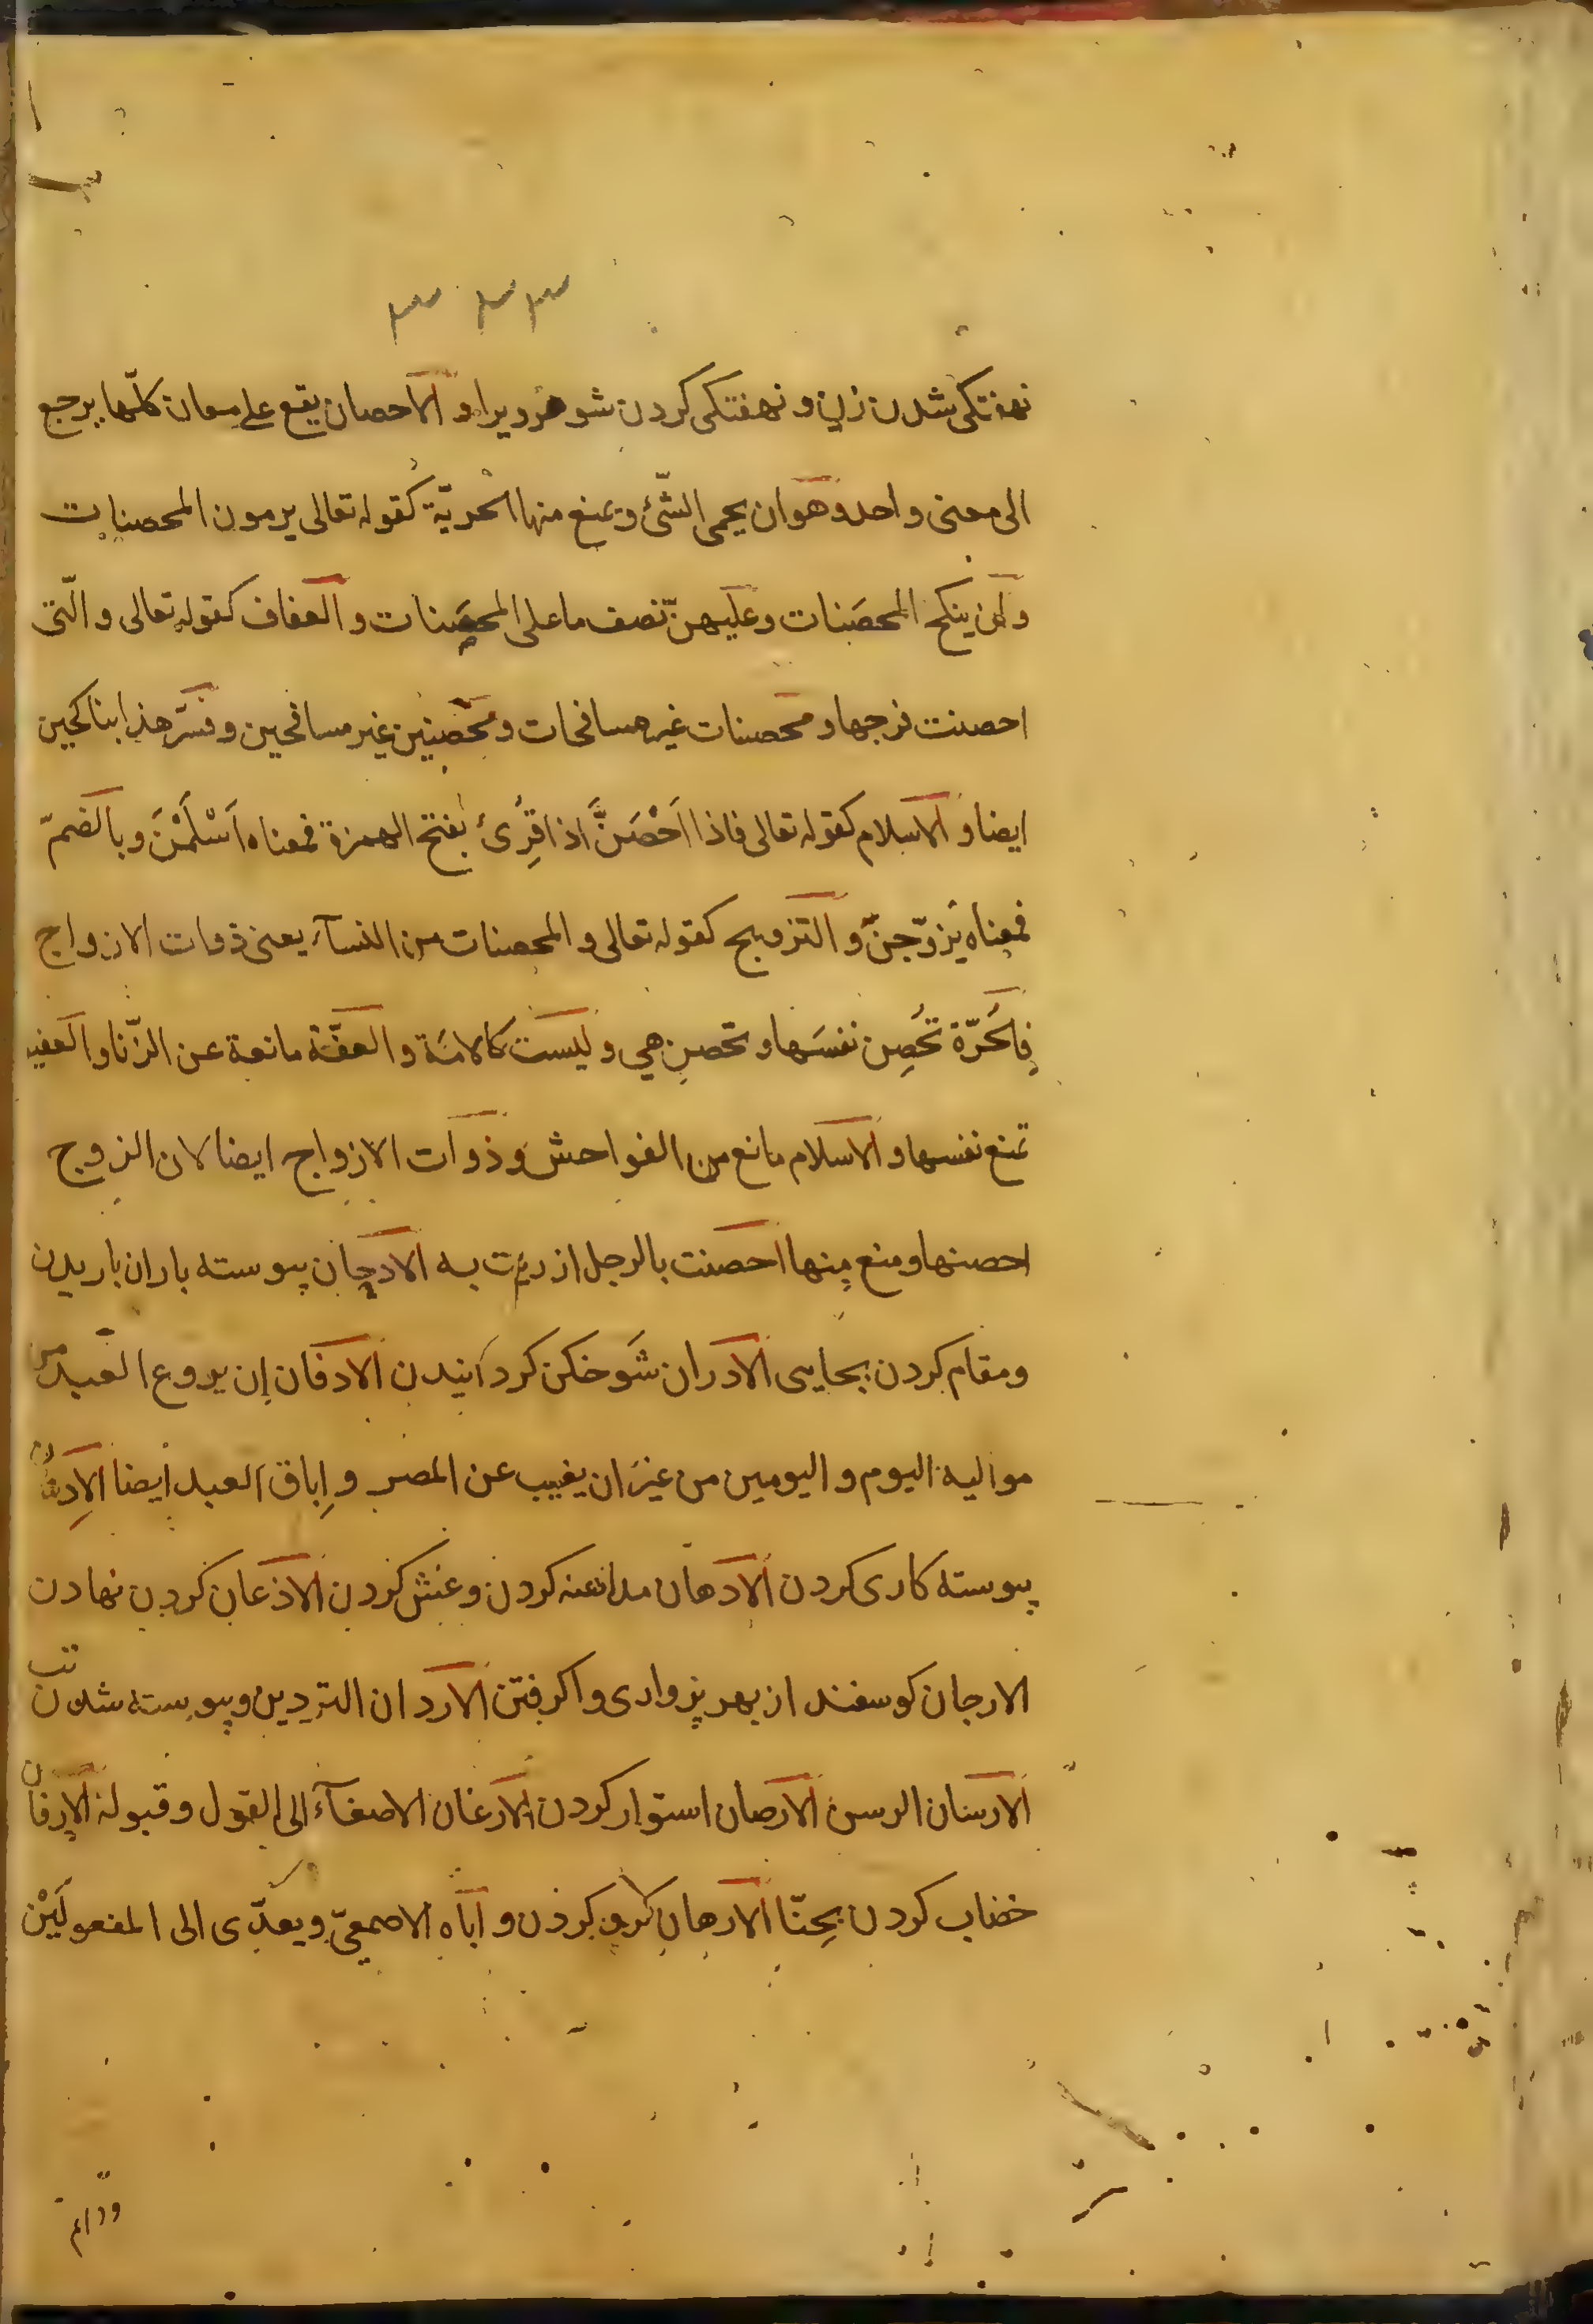 نهفتكى شدن زن و نهفتكى كردن شوهر ويرا و الاحصان يقع على معان كلّها يرجع
الى معنى واحد وهو ان يحمى الشّئ ويمنع منها الحريّة كقوله تعالى يرمون المحصنات
وان ينكح المحصَنات وعليهنّ نصف ما على المحصَنات و العفاف كقوله تعالى و الّتى
احصنت فرجها و محصنات غير مسافحات و محصنين غير مسافحين و فسّر هذا بناكحين
ايضا و الاسلام كقوله تعالى فاذا اَحْصَنَّ اذا قُرِئَ بفتح الهمزة فمعناه اَسْلَمْنَ و بالضمّ
فمعناه يزوّجنّ و التزويج كقوله تعالى و المحصنات من النسآء يعنى ذوات الازواج
فالحُرّة تُحصِن نفسَها و تحصن هي و ليست كالامَة و العفّة مانعة عن الزّنا و العفيـ
تمنع نفسها و الاسلام مانع من الفواحش و ذوات الازواج ايضا لان الزوج
احصنها و منع منها احصنت بالرجل ازديت به الادجان پيوسته باران باريدن
و مقام كردن بجايى الادران شوخكن كردانيدن الادفان ان يروع العبد من
مواليه اليوم و اليومين من غير ان يغيب عن المصر و اِباق العبد ايضا الاِدمان
پيوسته كارى كردن الادهان مداهنه كردن و غش كردن الاذعان كردن نهادن
الارجان كوسفند از بهر پرواری واكرفتن الاردان التردين و پيوسته شدن تب
الارسان الرسن الارصان استوار كردن الارغان الاصغآء الى القول و قبوله الارقان
خضاب كردن بحِنّا الارهان كرو كردن و اباه الاصمعىّ و يعدّى الى المفعولَيْن